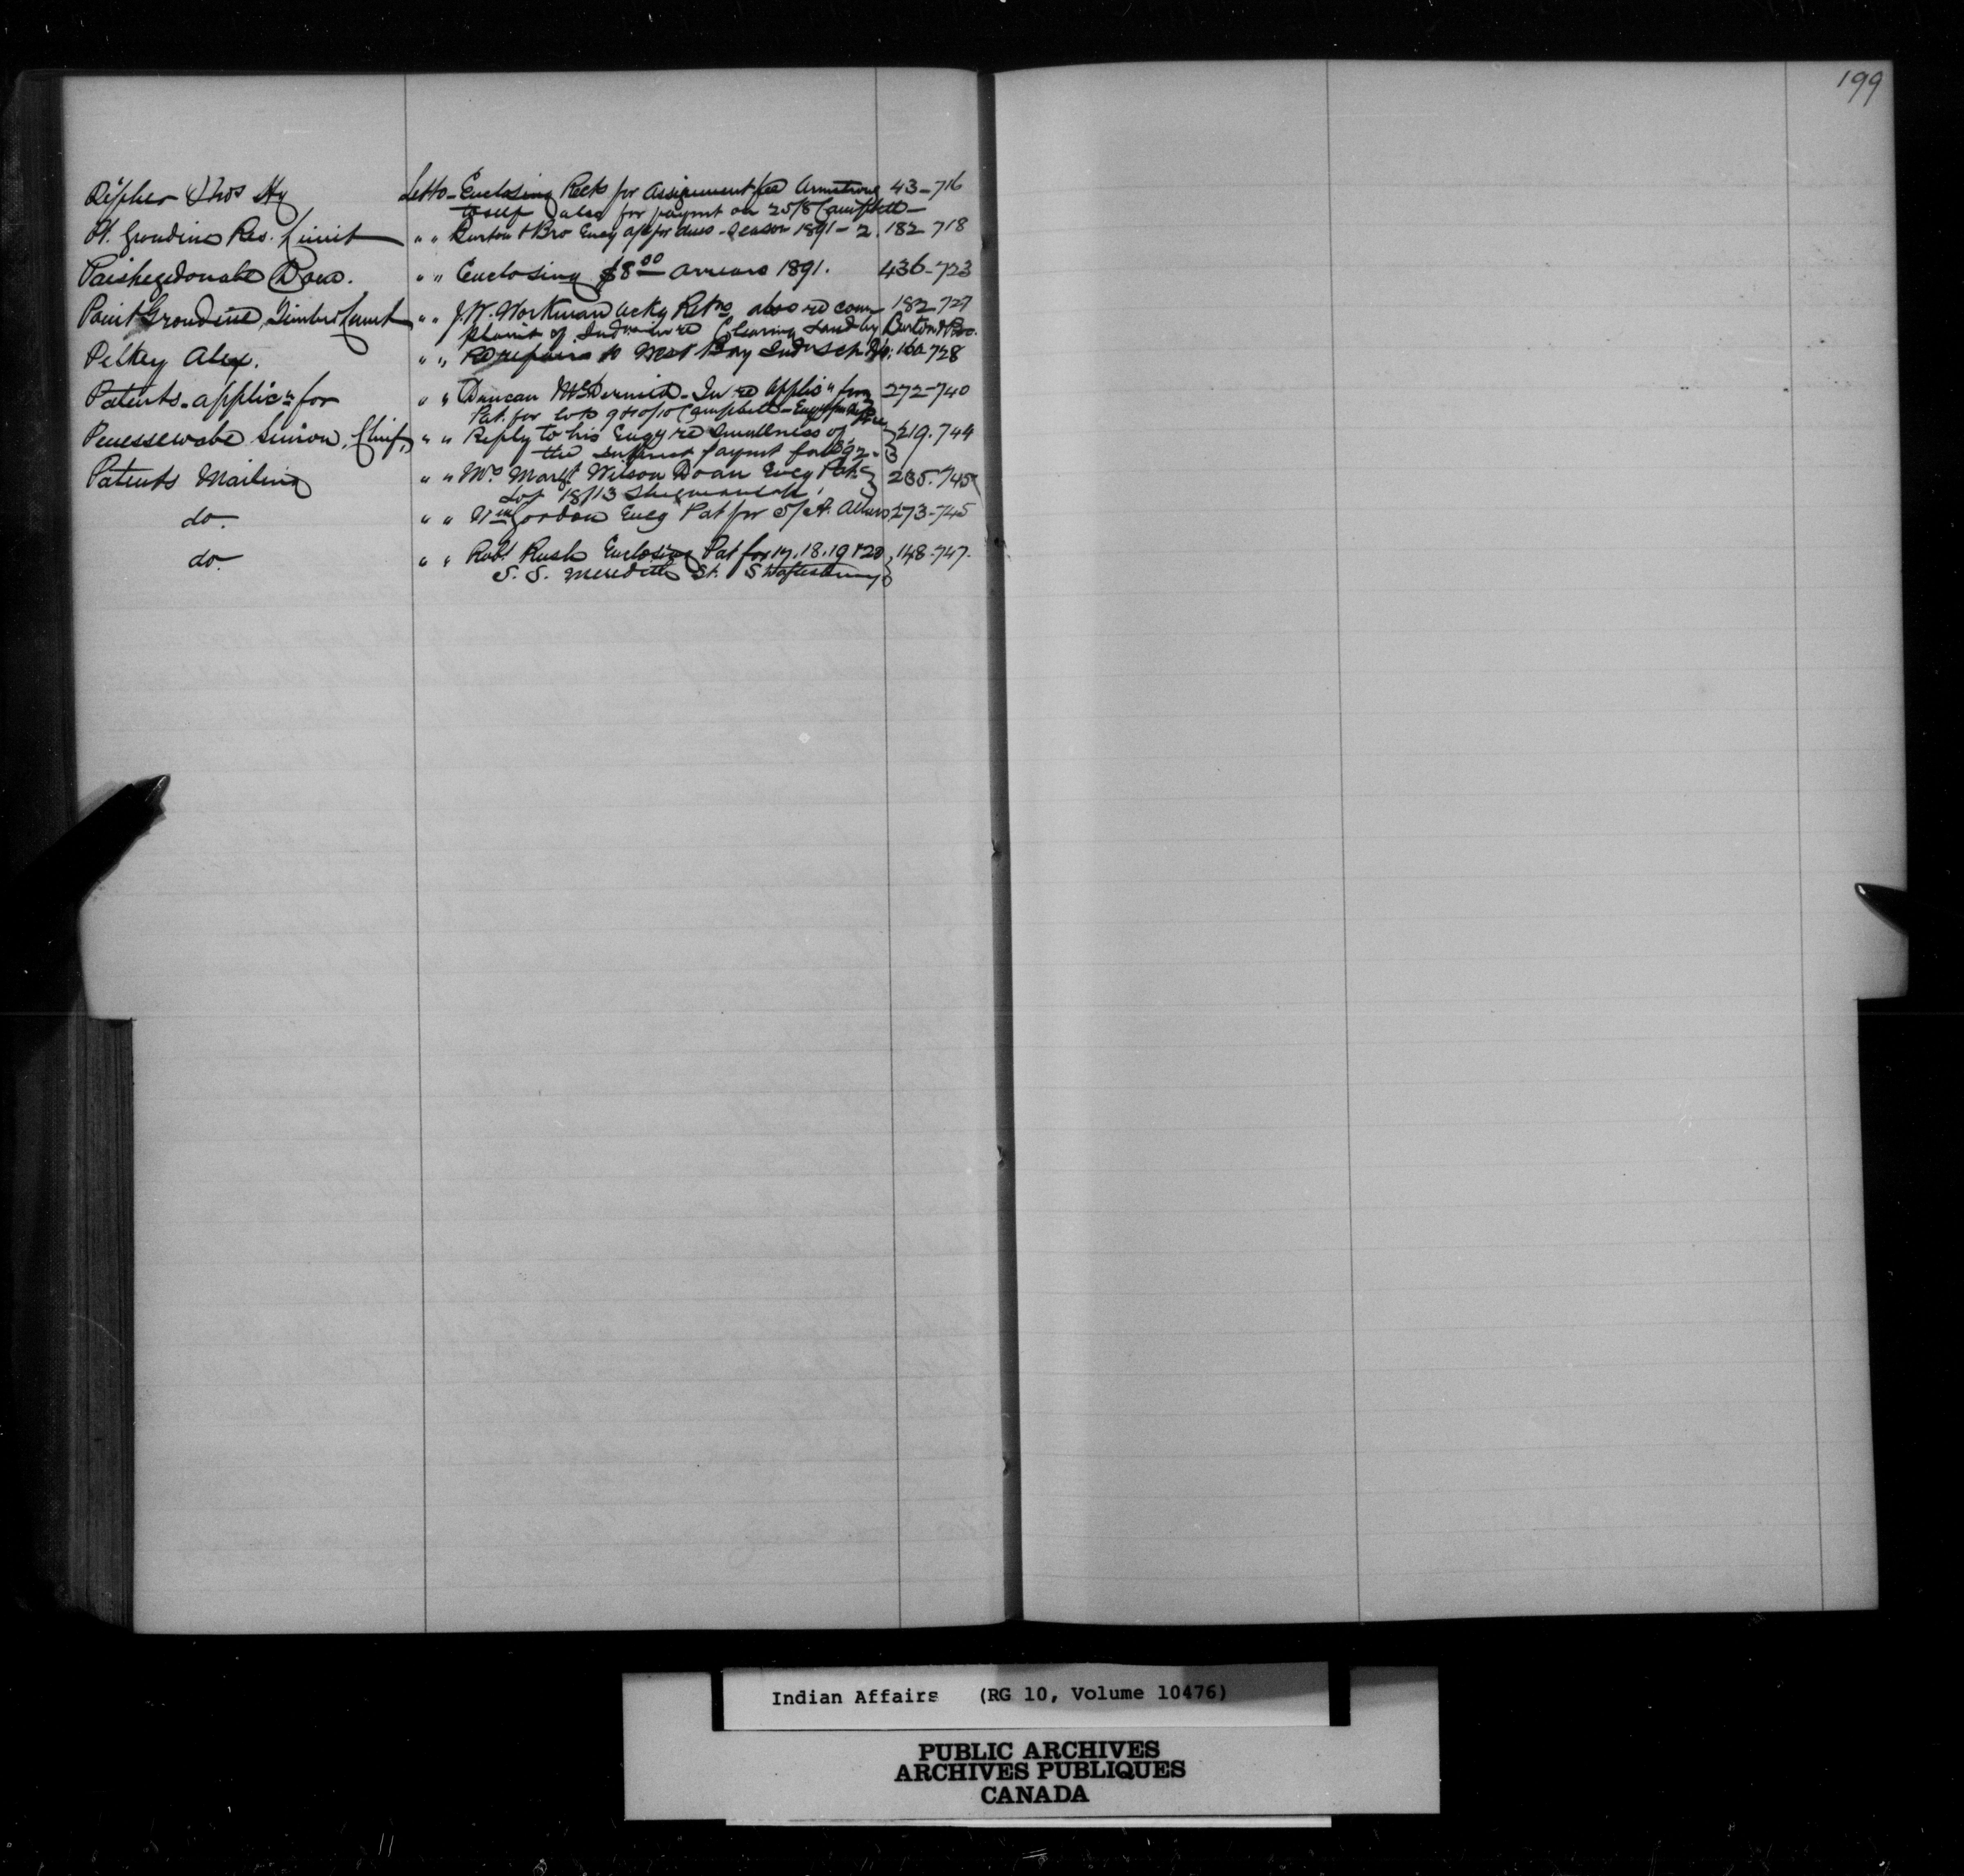 199
Thos Hy Letto - Enclosing Rects for Assignment fee Armstrong 43-716
to self also for paymt on 25/8 Campbell -
Pt. Grondine Res. Limit " " Burton & Bro Encg a/c for dues - Season 1891-2. 182 718
Paishegedonabe " " Enclosing $8 00 arrears 1891. 436-723
Point Grondine Timber Limit " " J.W. Workman ackg Retns also re com 182-727
plaint of Indns in re Clearing Land by Burton & Bro.
Pelkey Alex. " " Re repairs to West Bay Indn Sch 160-728
Patents - applicn for " " Duncan McDermid - In re Applicn for 272-740
Pat. for lots 9 & 10/10 Campbell -
Penessewabe Simion, Chief, " " Reply to his Enqy re Smallness of 219.744
the Interest paymt for 1892 -
Patents Mailing " " Mrs Margt Wilson Doan Encg Pat. 235.745
Lot 18/13 Sheguiandah,
do. " " Wm Gordon Encg Pat for 5/A. Allan 273-745
do. " " Robt Rush Enclosing Pat for 17.18.19 & 20 148-747.
S. S. Meredith St. Shaftesbury
Indian Affairs (RG 10, Volume 10476)
PUBLIC ARCHIVES
ARCHIVES PUBLIQUES
CANADA